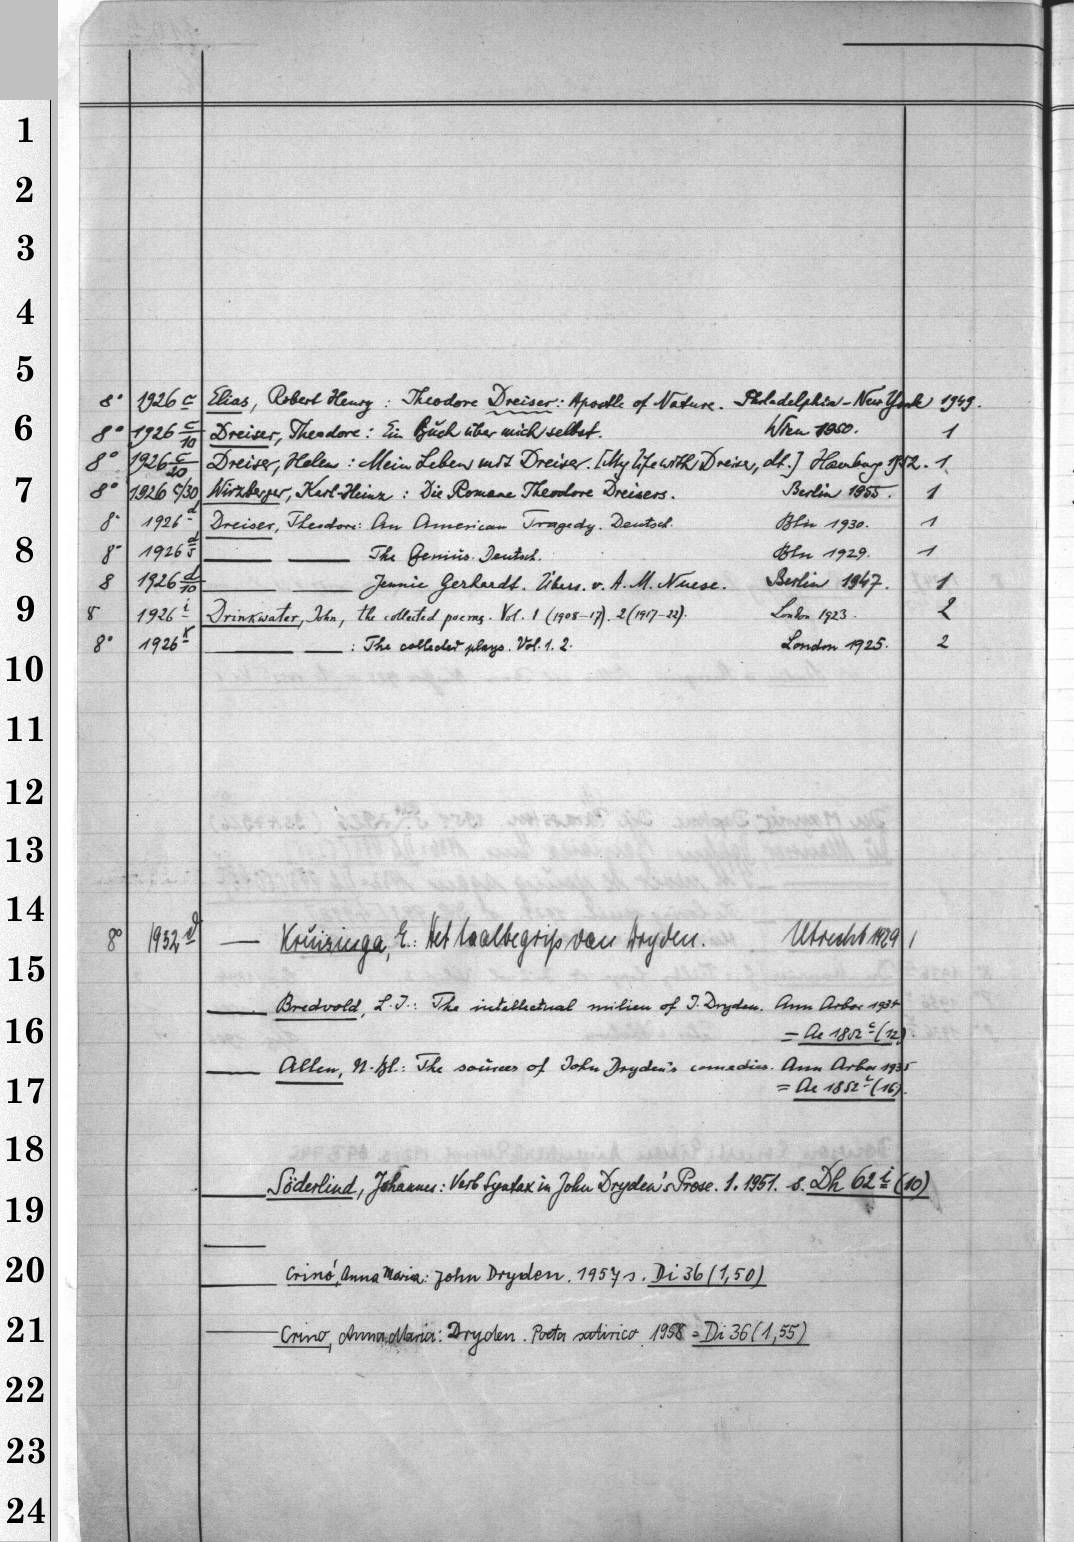 1
2
3
4
5
8° 1926 c Elias, Robert Henry : Theodore Dreiser: Apostle of Nature. Philadelphia - New York 1949.
6
8° 1926 c/10 Dreiser, Theodore: Ein Buch über mich selbst. Wien 1950. 1
8° 1926 c/20 Dreiser, Helen : Mein Leben mit Dreiser. [My life with Dreiser, dt.] Hamburg 1952. 1
7
8° 1926 c/30 Wirzberger, Karl-Heinz : Die Romane Theodore Dreisers. Berlin 1955. 1
8° 1926 d Dreiser, Theodore: An American Tragedy. Deutsch. Bln 1930. 1
8
8° 1926 d/5 —— —— The Genius. Deutsch. Bln 1929. 1
8 1926 d/10 —— —— Jennie Gerhardt. Übers. v. A. M. Nuese. Berlin 1947. 1
9
8 1926 i Drinkwater, John, the collected poems. Vol. 1 (1908-17). 2 (1917-22). London 1923. 2
8° 1926 k —— —— : The collected plays. Vol. 1. 2. London 1925. 2
10
11
12
13
14
8° 1932 d — Kruisinga, E.: Het taalbegrip van Dryden. Utrecht 1929 1
15
—— Bredvold, L. I.: The intellectual milieu of J. Dryden. Ann Arbor 1934
16
= Ae 1852 c (12)
—— Allen, N. Bl.: The sources of John Dryden's comedies. Ann Arbor 1935
17
= Ae 1852 c (16).
18
—— Söderlind, Johannes: Verb Syntax in John Dryden's Prose. 1. 1951. s. Dh 62 i (10)
19
——
20
—— Crinó, Anna Maria: John Dryden. 1957 s. Di 36 (1,50)
21
—— Crino, Anna Maria: Dryden. Poeta satirico 1958 = Di 36 (1,55)
22
23
24